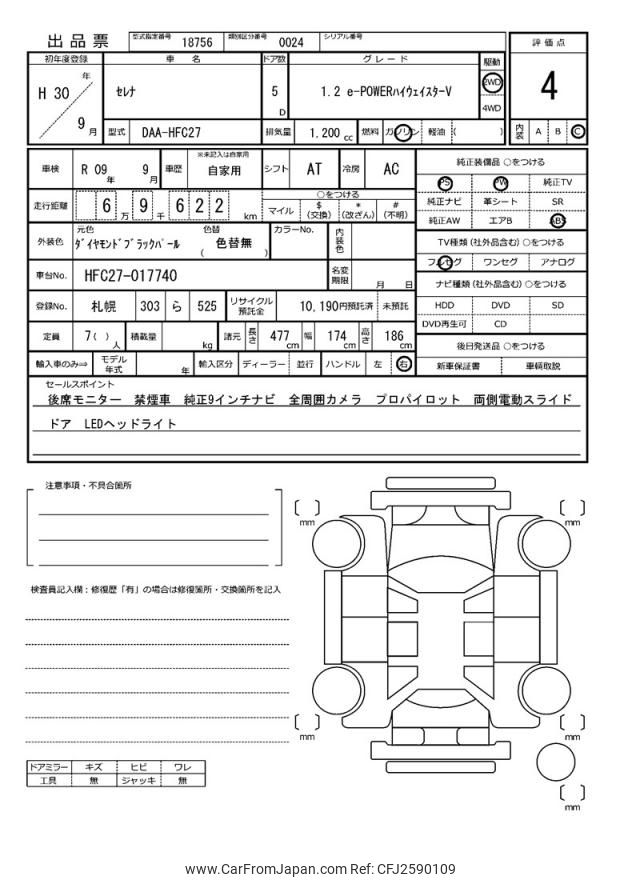 出品票 型式指定番号 18756 類別区分番号 0024 シリアル番号
評価点
初年度登録 車名 ドア数 グレード 駆動
H 30 年 9 月 セレナ 5 D 1.2 e-POWERハイウェイスターV 2WD 4WD
4
型式 DAA-HFC27 排気量 1,200 cc 燃料 ガソリン 軽油 ( )
内装 A B C
車検 R 09 年 9 月 車歴 ※未記入は自家用 自家用 シフト AT 冷房 AC
純正装備品 ○をつける
PS PW 純正TV
走行距離 6 万 9 千 6 2 2 km ○をつける
マイル $ (交換) * (改ざん) # (不明)
純正ナビ 革シート SR
純正AW エアB ABS
外装色 元色 ダイヤモンドブラックパール 色替 ( 色替無 ) カラーNo. 内装色
TV種類 (社外品含む) ○をつける
フルセグ ワンセグ アナログ
車台No. HFC27-017740 名変期限 月 日
ナビ種類 (社外品含む) ○をつける
登録No. 札幌 303 ら 525 リサイクル預託金 10,190円預託済 未預託
HDD DVD SD
DVD再生可 CD
定員 7( ) 人 積載量 kg 諸元 長さ 477 cm 幅 174 cm 高さ 186 cm
後日発送品 ○をつける
輸入車のみ⇒ モデル年式 年 輸入区分 ディーラー 並行 ハンドル 左 右
新車保証書 車輌取説
セールスポイント
後席モニター 禁煙車 純正9インチナビ 全周囲カメラ プロパイロット 両側電動スライド
ドア LEDヘッドライト
注意事項・不具合箇所
mm
mm
検査員記入欄：修復歴「有」の場合は修復箇所・交換箇所を記入
mm
mm
ドアミラー キズ ヒビ ワレ
工具 無 ジャッキ 無
mm
www.CarFromJapan.com Ref: CFJ2590109